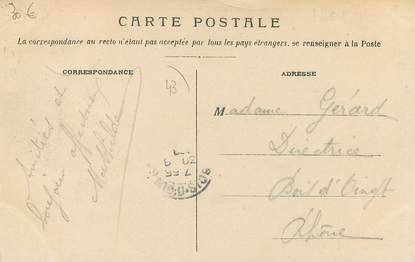 30 €
CARTE POSTALE
La correspondance au recto n'étant pas acceptée par tous les pays étrangers, se renseigner à la Poste
CORRESPONDANCE
ADRESSE
43
Amitiés et
toujours affectueux
Mathilde
Madame Gérard
Directrice
Bois d'Oingt
Rhône